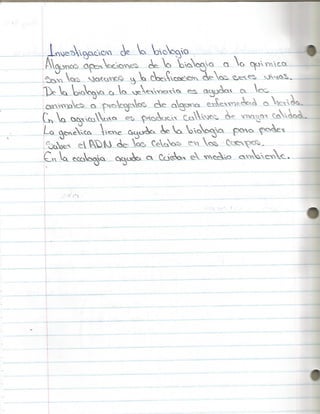 Investigacion de la biologia
Algunos aportaciones de la biologia a la quimica
son las vacunas y la clacificacion de los seres vivos.
De la biologia a la veterinaria es ayudar a los
animales a protegerlos de alguna enfermedad o herida.
En la agricultura es producir cultivos de mayor calidad.
La genetica tiene ayuda de la biologia para poder
saber el ADN de las celulas en los cuerpos.
En la ecologia ayuda a cuidar el medio ambiente.